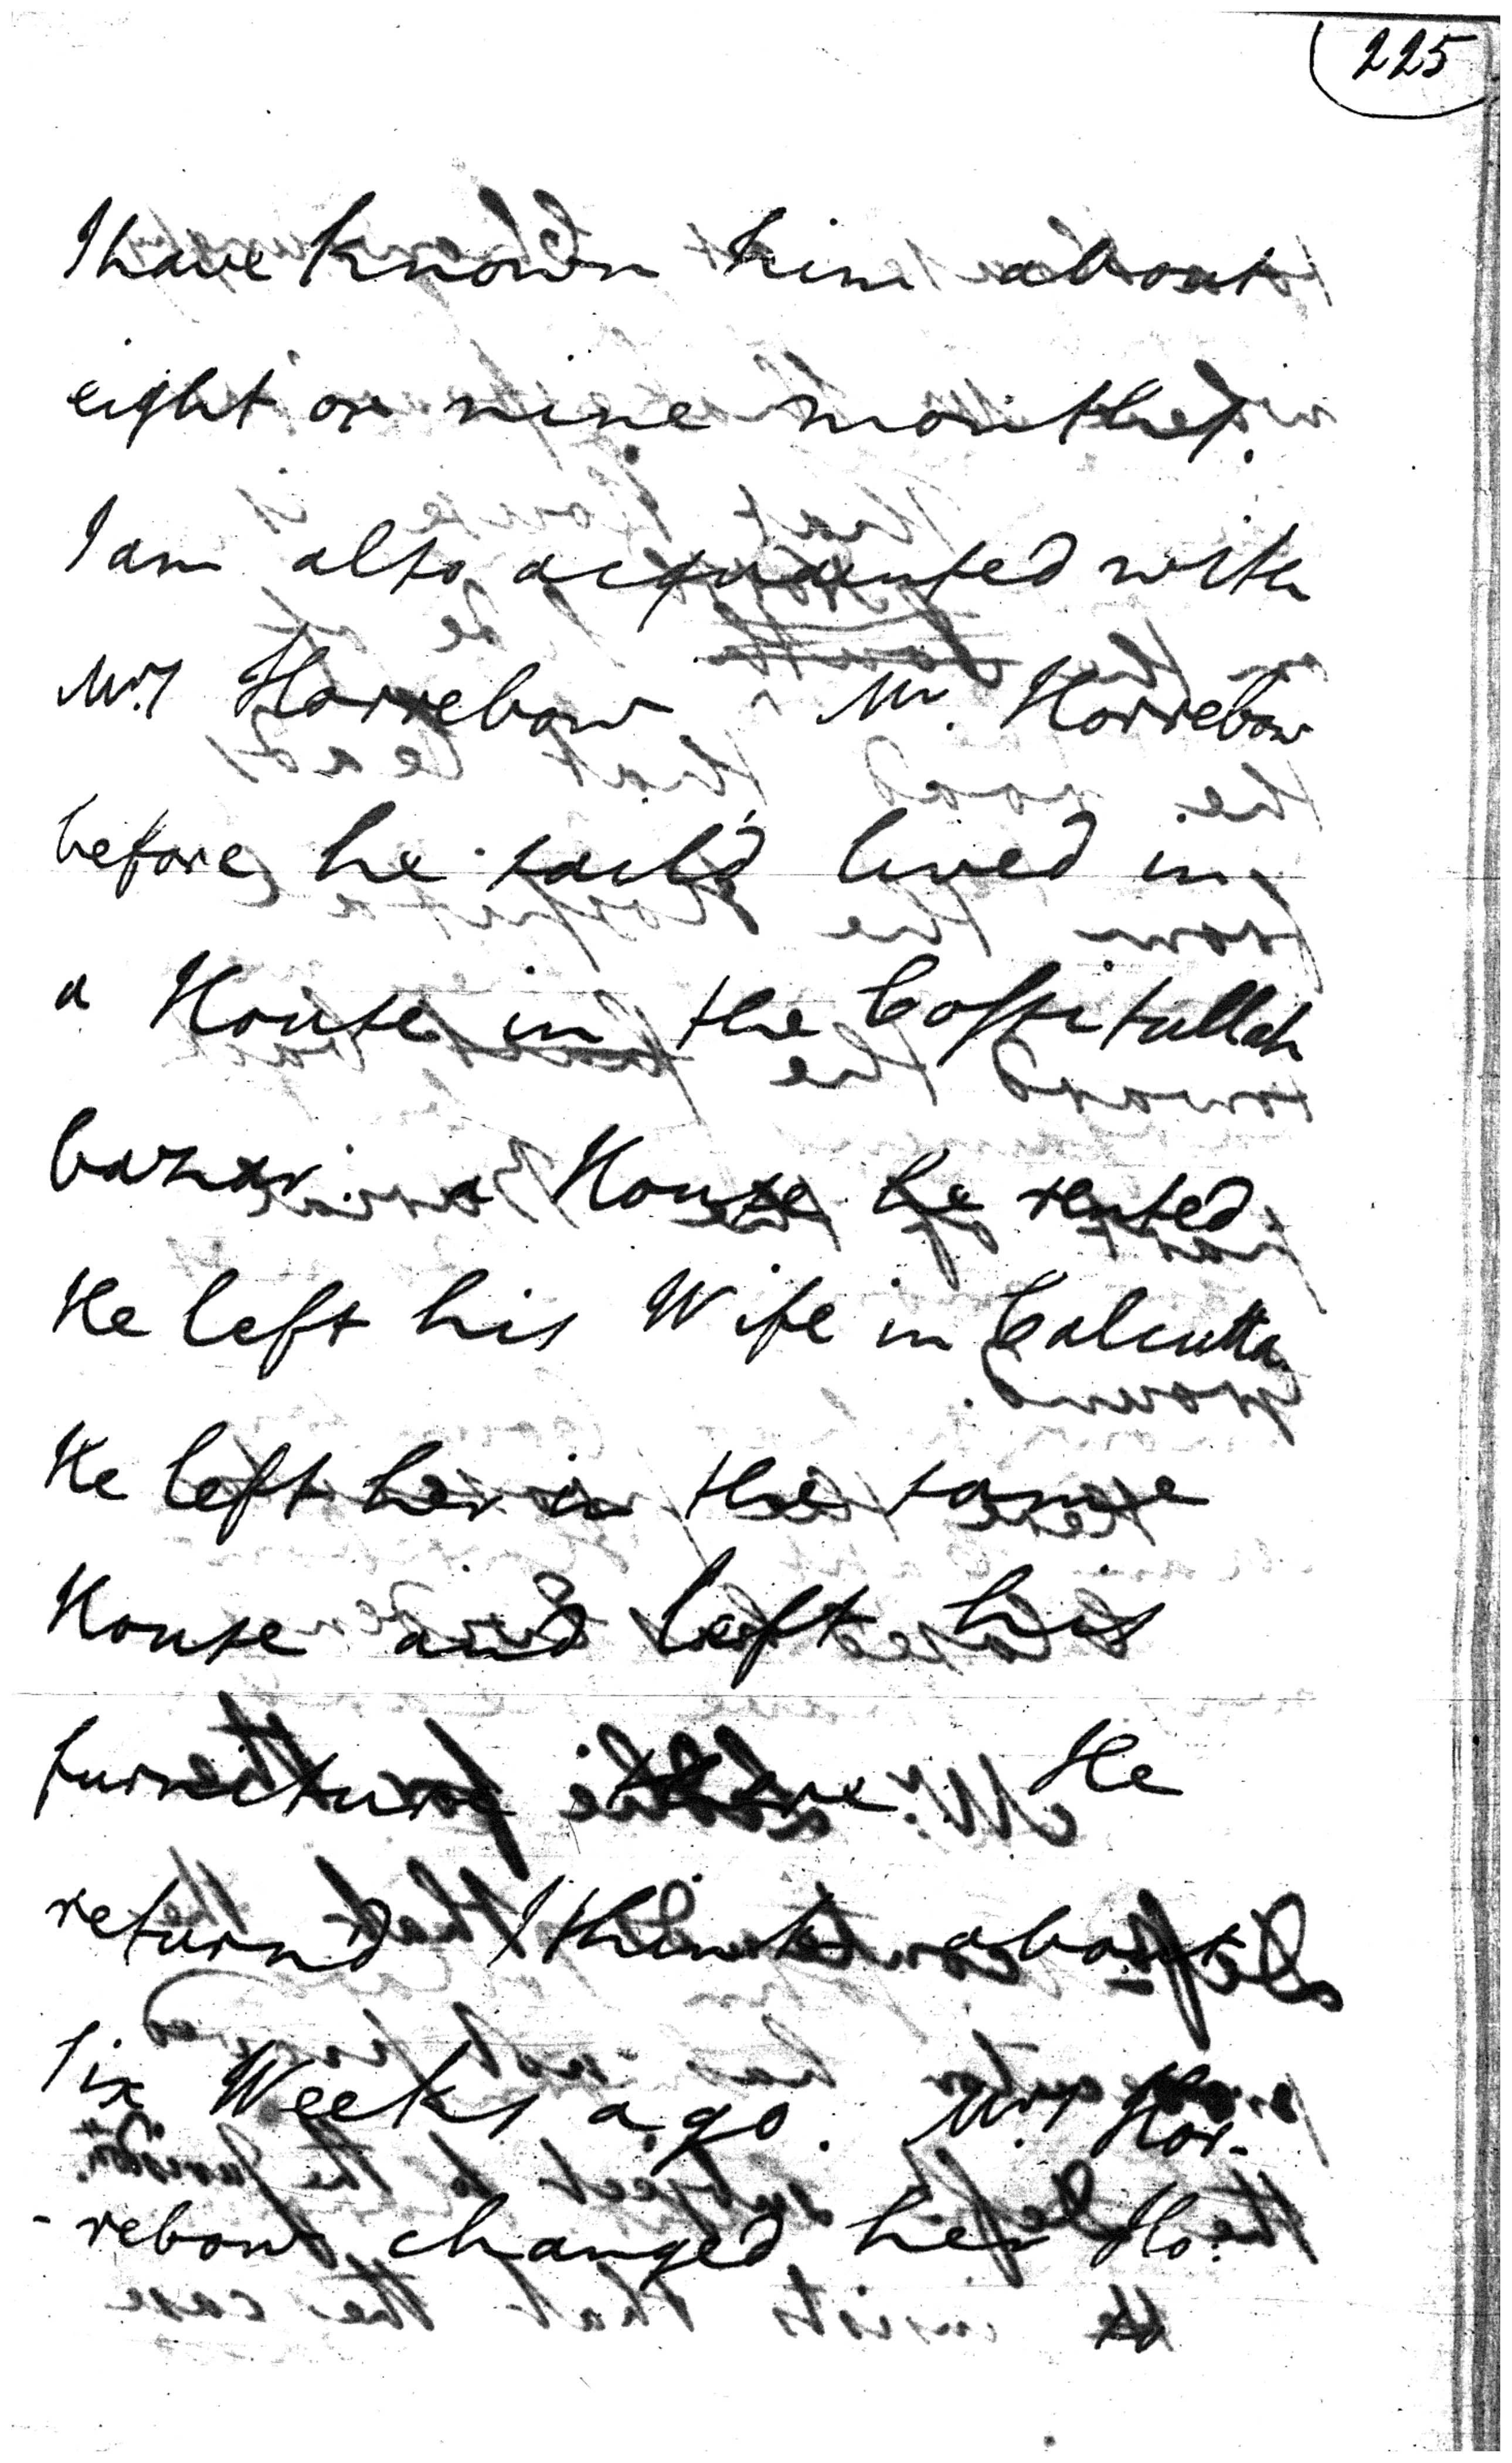 225
I have known him about
eight or nine months.
I am also acquainted with
Mrs Horrebow Mr. Horrebow
before he sail'd lived in
a House in the Cossitullah
bazar. a House he rented.
He left his Wife in Calcutta.
He left her in the same
House and left his
furniture there. He
return'd I think about
six Weeks ago. Mrs Hor-
-rebow changed her Ho: